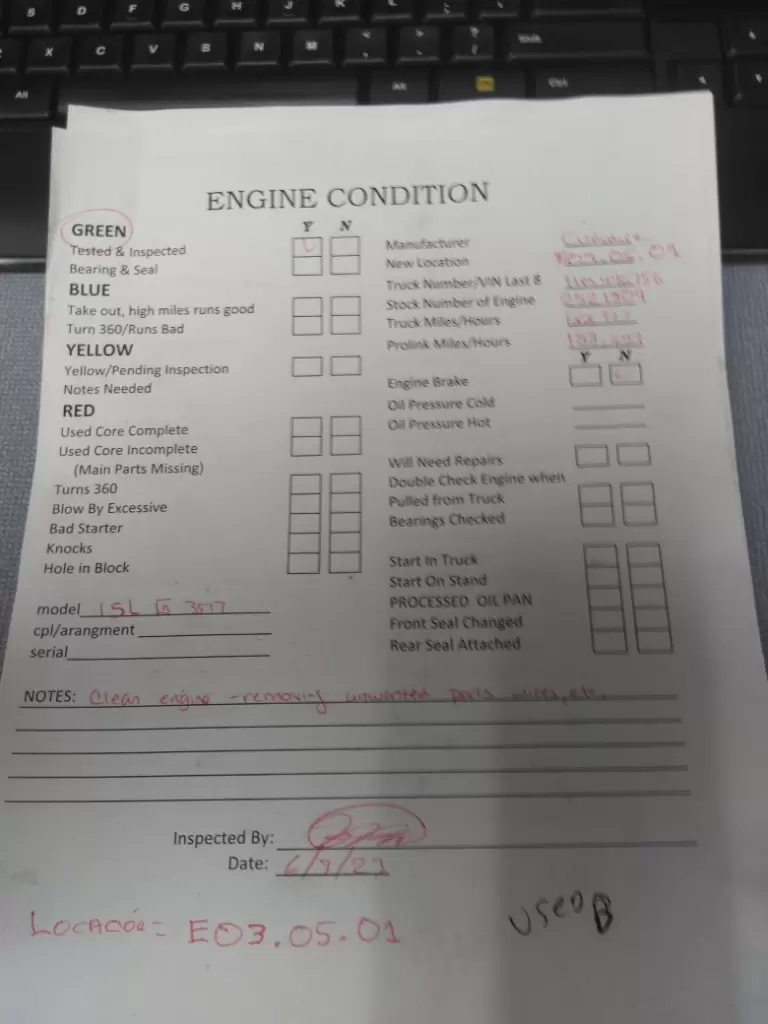 ENGINE CONDITION
GREEN
Y N
Tested & Inspected
Bearing & Seal
BLUE
Take out, high miles runs good
Turn 360/Runs Bad
YELLOW
Yellow/Pending Inspection
Notes Needed
RED
Used Core Complete
Used Core Incomplete
(Main Parts Missing)
Turns 360
Blow By Excessive
Bad Starter
Knocks
Hole in Block
model ISL G
cpl/arangment
serial
Manufacturer
New Location
Truck Number/VIN Last 8
Stock Number of Engine
Truck Miles/Hours
Prolink Miles/Hours
Y N
Engine Brake
Oil Pressure Cold
Oil Pressure Hot
Will Need Repairs
Double Check Engine when
Pulled from Truck
Bearings Checked
Start In Truck
Start On Stand
PROCESSED OIL PAN
Front Seal Changed
Rear Seal Attached
NOTES: Clean engine - removing unwanted parts wires, etc.
Inspected By:
Date:
E03.05.01
USED B
S D F G H J K L
X C V B N M
Alt Alt Ctrl